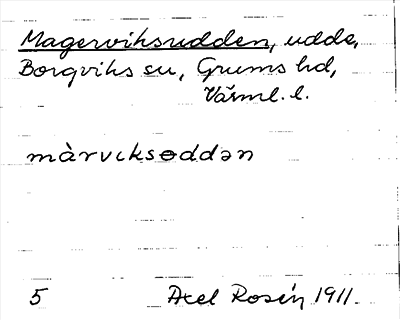 Magerviksudden, udde,
Borgviks sn, Grums hd,
Värml. l.
màrvɩksɵddən
5 Axel Rosén 1911.